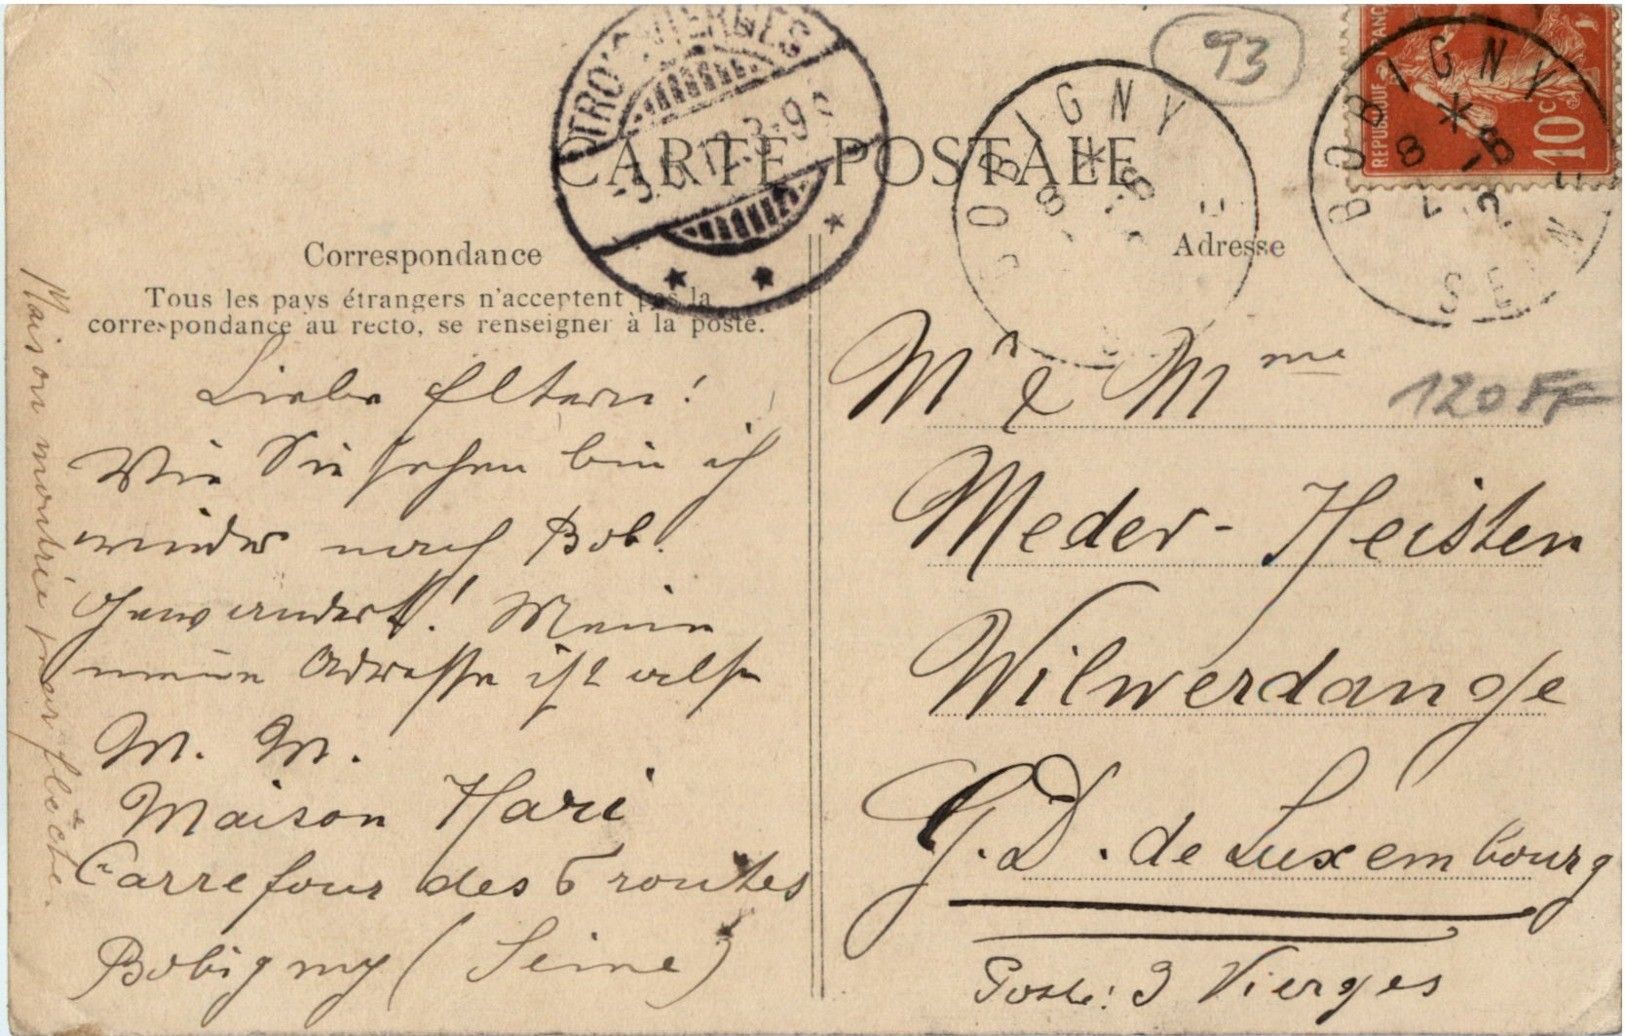 CARTE POSTALE
Correspondance
Adresse
Tous les pays étrangers n'acceptent pas la
correspondance au recto, se renseigner à la poste.
Liebe Eltern!
Wie Sie sehen bin ich
wieder nach Bob.
gewandert! Meine
neue Adresse ist also
M. M.
Maison Hari
Carrefour des 6 routes
Bobigny (Seine)
Maison montrée par flèche.
Mr & Mme
Meder-Heisten
Wilwerdange
G. D. de Luxembourg
Poste: 3 Vierges
93
120 FF
TROISVIERGES
BOBIGNY
8 -8
BOBIGNY
8 -8
SEINE
REPUBLIQUE FRANÇ
10c